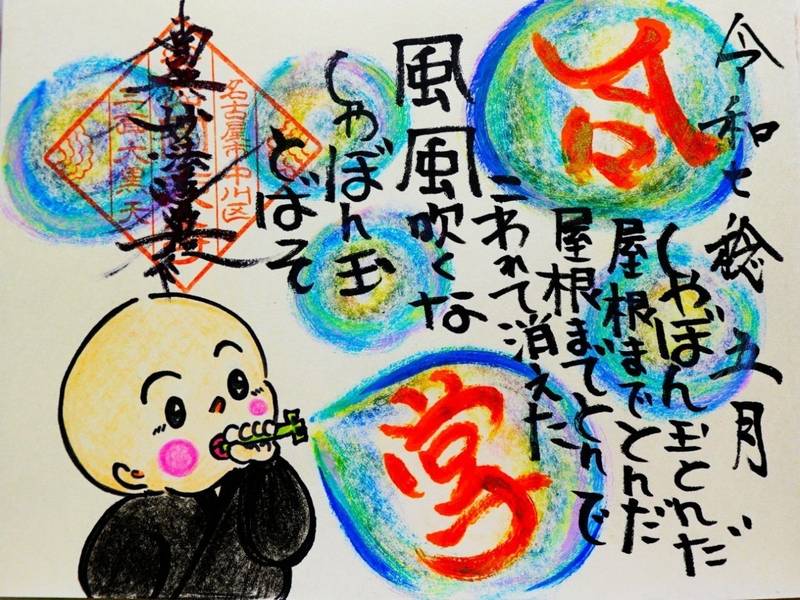 令和七稔五月
合掌
しゃぼん玉とんだ
屋根までとんだ
屋根までとんで
こわれて消えた
風風吹くな
しゃぼん玉
とばそ
名古屋市中川区
三面大黒天